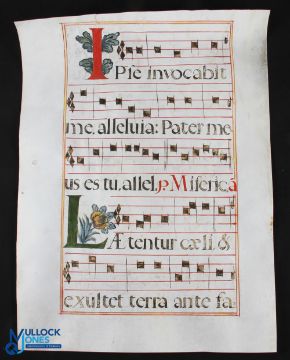 IPse invocabit
me, alleluia: Pater me
us es tu, allel. ps. Misericā
LÆtentur cæli, &
exultet terra ante fa
MULLOCK
JONES